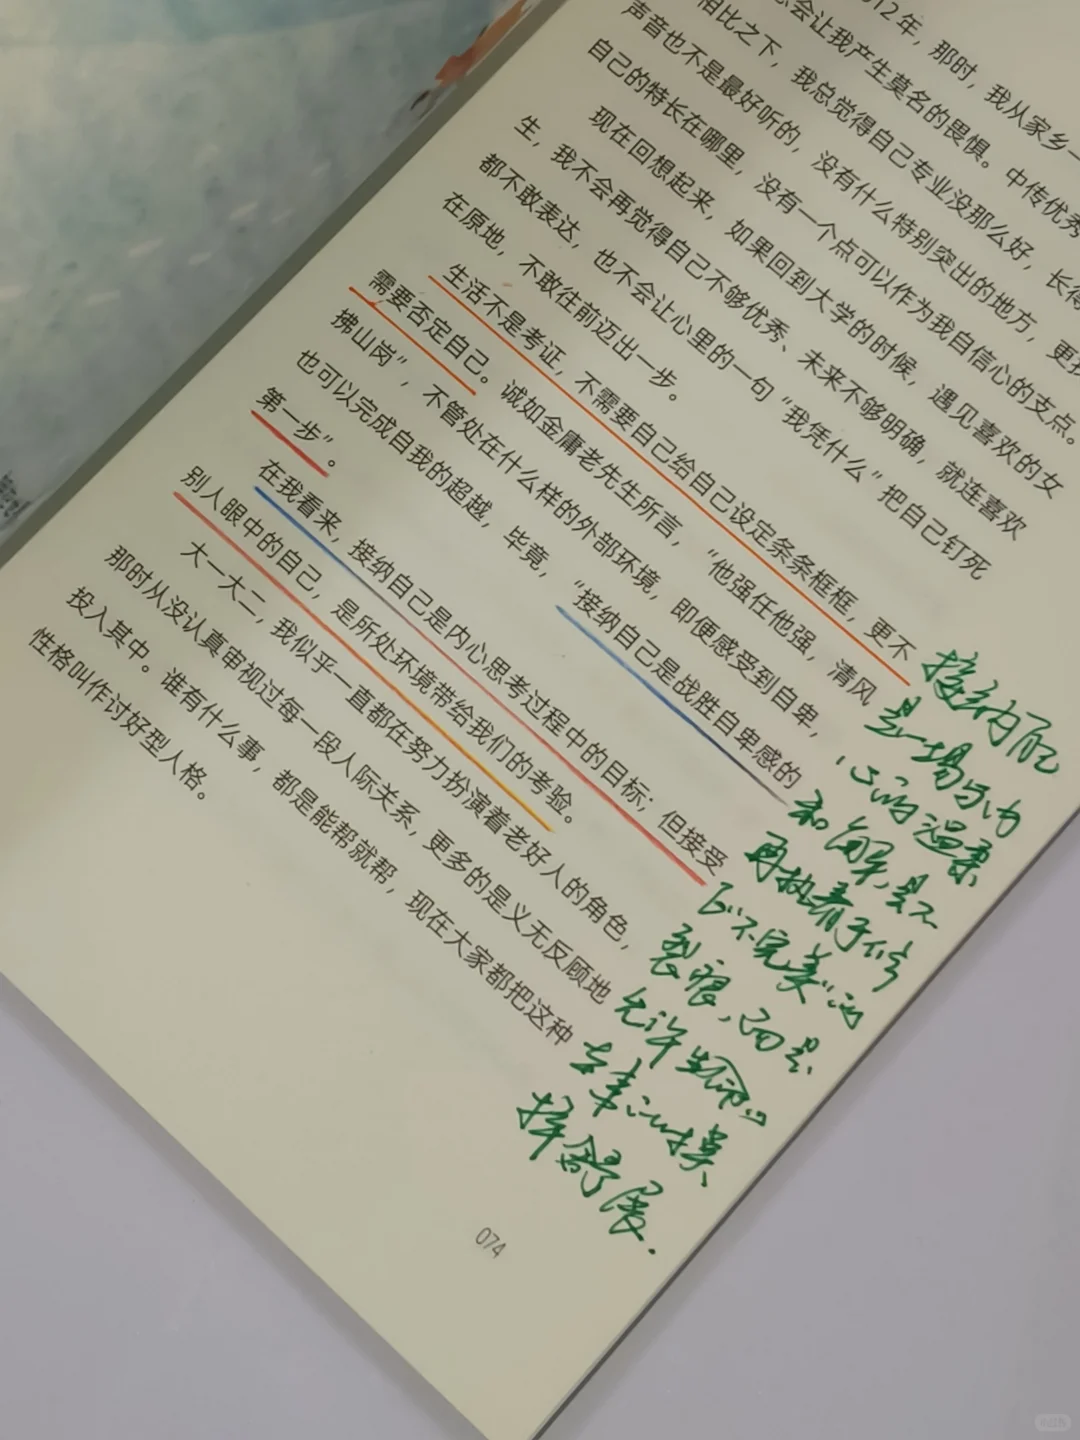 012年，那时，我从家乡一
会让我产生莫名的畏惧。中传优秀
相比之下，我总觉得自己专业没那么好，长得
声音也不是最好听的，没有什么特别突出的地方，更找
自己的特长在哪里，没有一个点可以作为我自信心的支点。
现在回想起来，如果回到大学的时候，遇见喜欢的女
生，我不会再觉得自己不够优秀、未来不够明确，就连喜欢
都不敢表达，也不会让心里的一句“我凭什么”把自己钉死
在原地，不敢往前迈出一步。
生活不是考证，不需要自己给自己设定条条框框，更不
需要否定自己。诚如金庸老先生所言，“他强任他强，清风
拂山岗”，不管处在什么样的外部环境，即便感受到自卑，
也可以完成自我的超越，毕竟，“接纳自己是战胜自卑感的
第一步”。
在我看来，接纳自己是内心思考过程中的目标；但接受
别人眼中的自己，是所处环境带给我们的考验。
大一大二，我似乎一直都在努力扮演着老好人的角色，
那时从没认真审视过每一段人际关系，更多的是义无反顾地
投入其中。谁有什么事，都是能帮就帮，现在大家都把这种
性格叫作讨好型人格。
接纳自己
是一场与内
心的温柔
和解，是不
再执着于修
的“不完美”的
裂痕，而是
允许生命以
本来的模
样舒展.
074